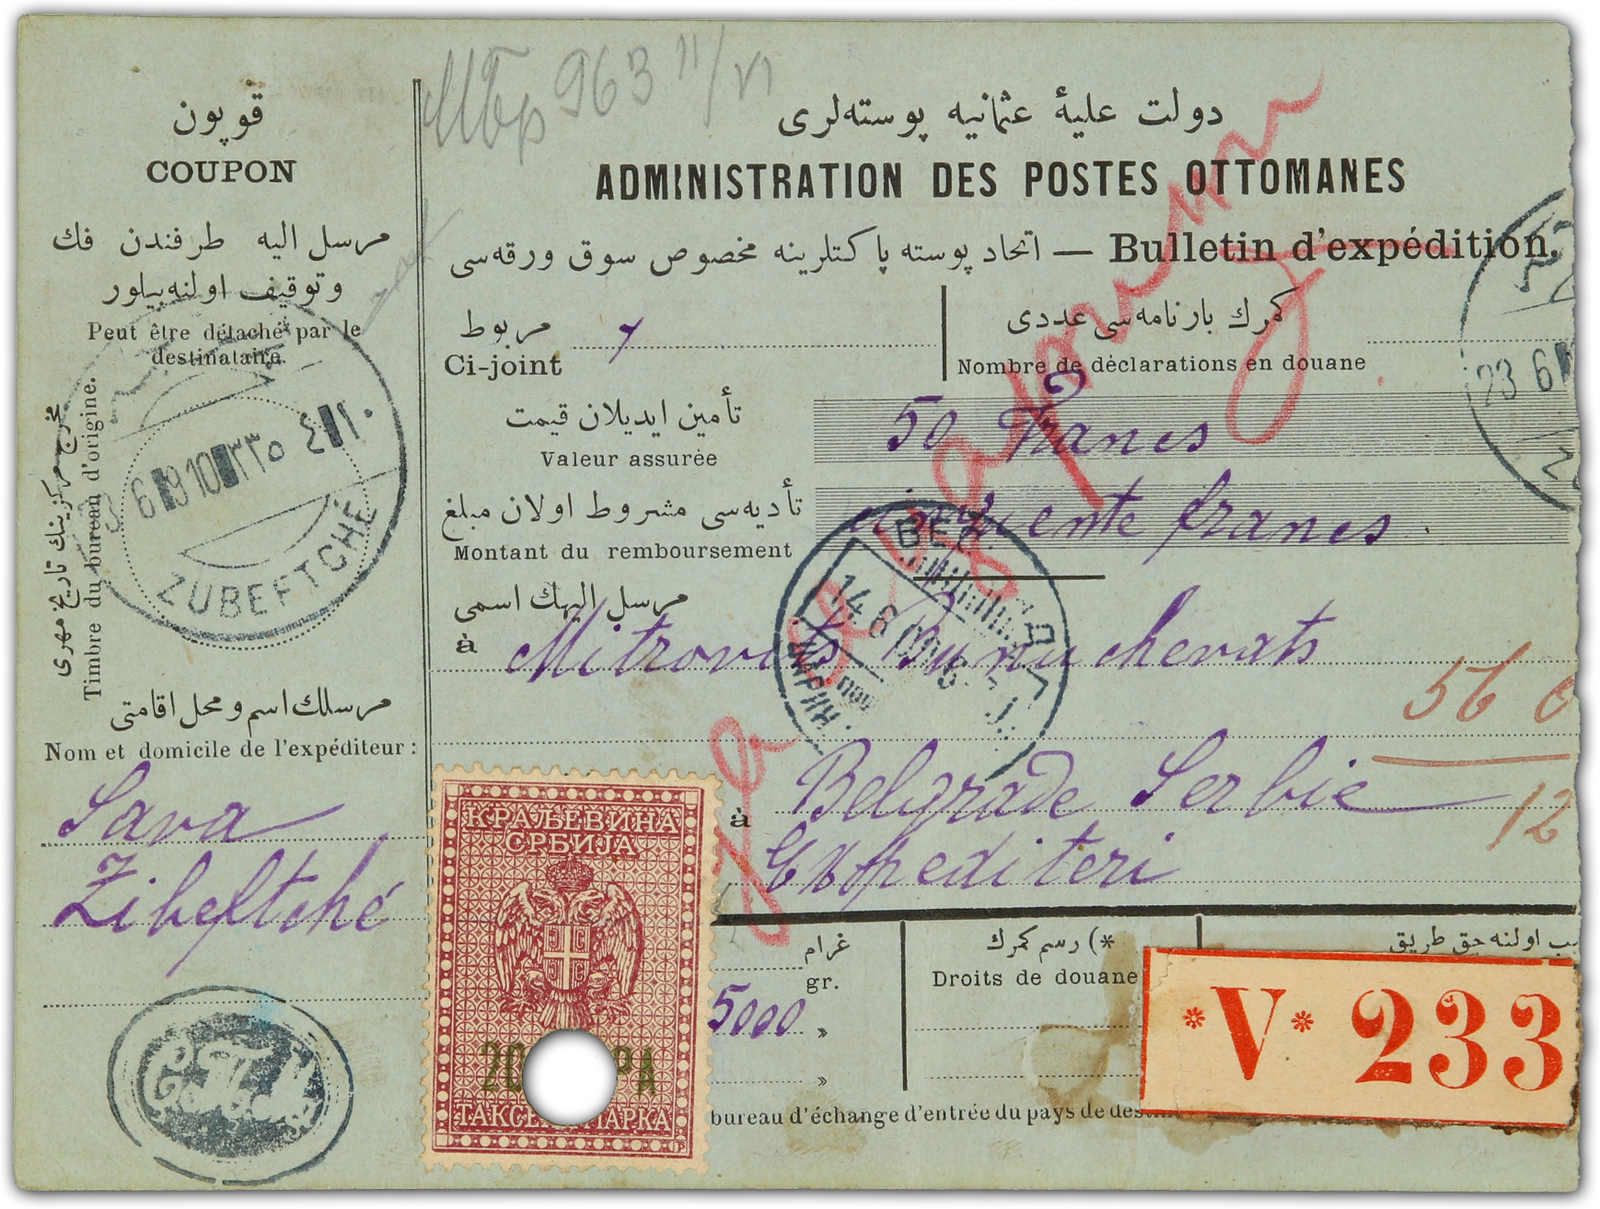 قوپون
COUPON
مرسل اليه طرفندن فك
و توقيف اولنه بيلور
Peut être détaché par le
destinataire.
مخرج مركزينك تاريخ مهرى
Timbre du bureau d'origine.
6 9 10 ٣٣٥ ٤ ١٠
ZUBEFTCHÉ
مرسلك اسم و محل اقامتى
Nom et domicile de l'expéditeur :
Sava
Zibeftché
963 11/VI
دولت عليۀ عثمانيه پوسته لرى
ADMINISTRATION DES POSTES OTTOMANES
اتحاد پوسته پاكتلرينه مخصوص سوق ورقه سى — Bulletin d'expédition.
مربوط
Ci-joint
كمرك بارنامه سى عددى
Nombre de déclarations en douane
23 6
تأمين ايديلان قيمت
Valeur assurée
50 Francs
تأديه سى مشروط اولان مبلغ
Montant du remboursement
francs
14 6
ЦАРИН
مرسل اليهك اسمى
à Mitrovats
56
12
à Belgrade Serbie
Expediteri
КРАЉЕВИНА
СРБИЈА
20 ПАРА
ТАКСЕНА МАРКА
غرام
gr.
5000 »
»
(* رسم كمرك
Droits de douane
اولنه جق طريق
*V* 233
bureau d'échange d'entrée du pays de